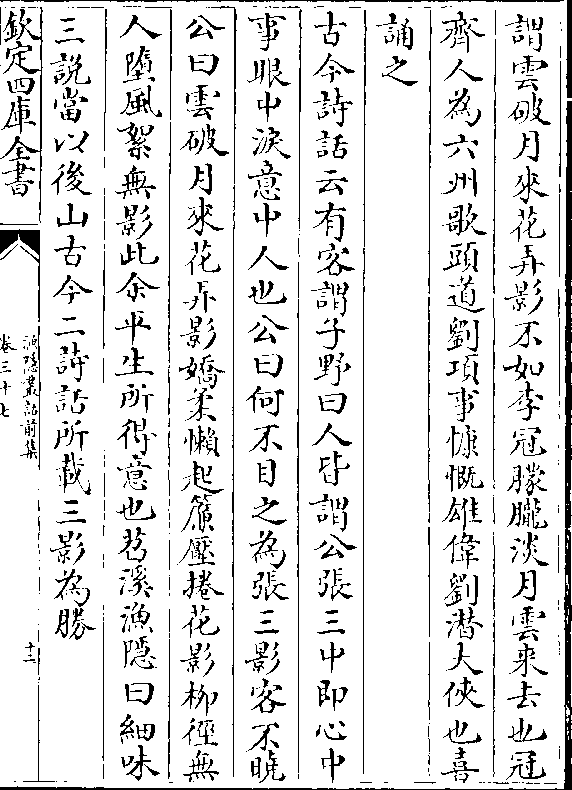 謂雲破月來花弄影不如李冠朦朧淡月雲来去也冠
齊人為六州歌頭道劉項事慷慨雄偉劉潜大俠也喜
誦之
古今詩話云有客謂子野曰人皆謂公張三中即心中
事眼中淚意中人也公曰何不目之為張三影客不曉
公曰雲破月來花弄影嬌柔懶起簾壓捲花影柳徑無
人墮風絮無影此余平生所得意也苕溪漁隠曰細味
三說當以後山古今二詩話所載三影為勝
欽定四庫全書
漁隠叢話前集
卷三十七
十二